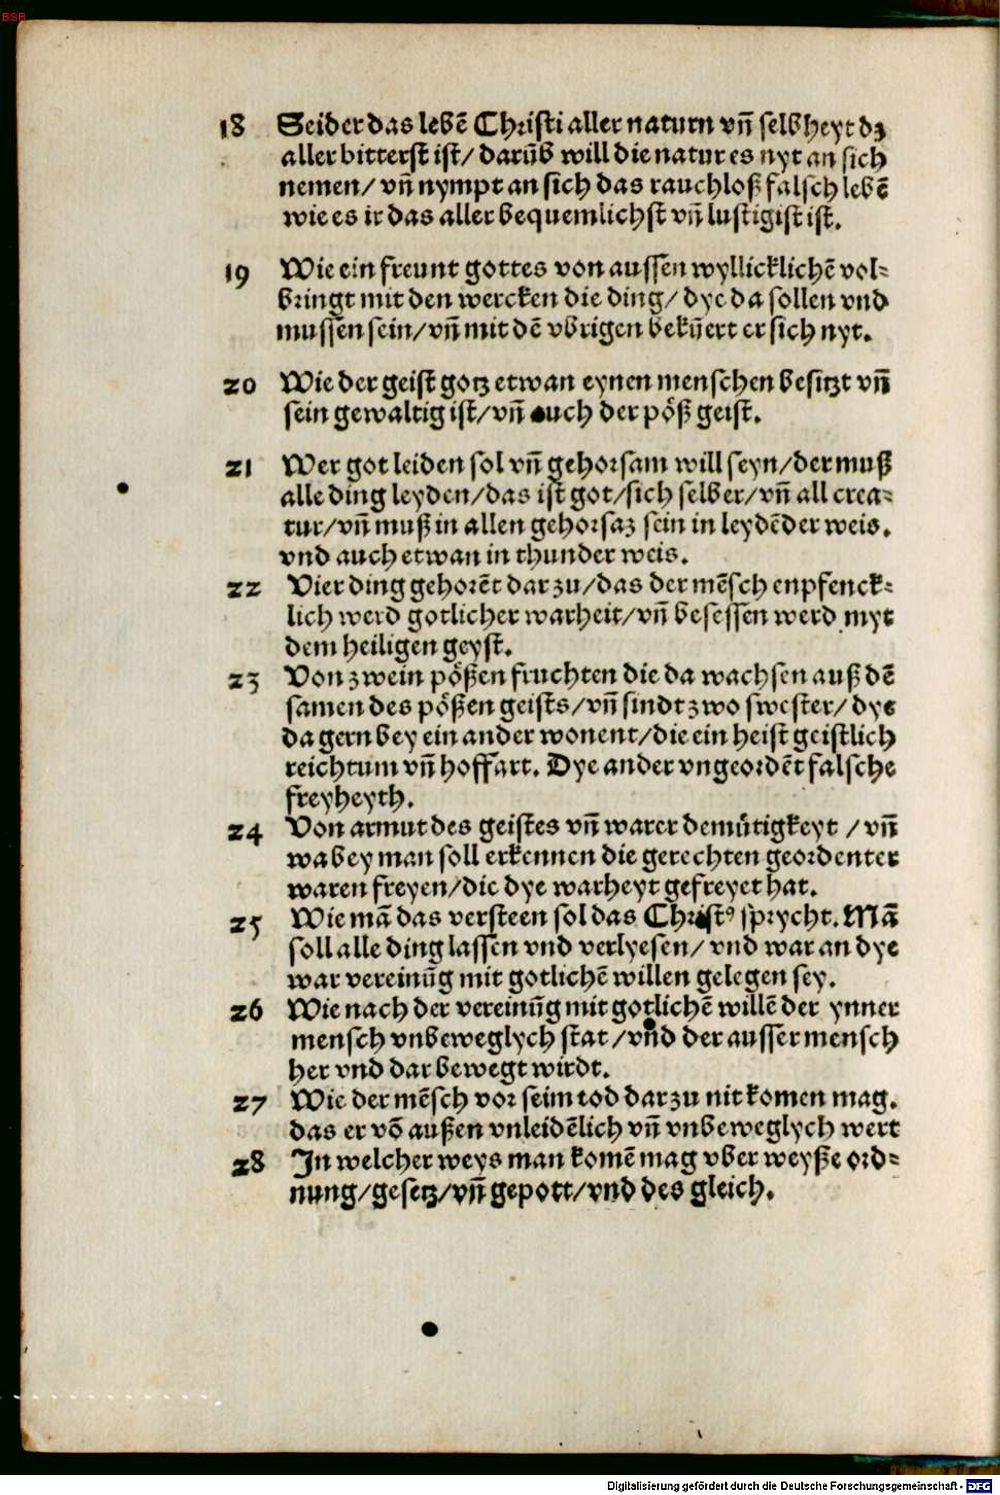 BSB
18 Seider das lebē Christi aller naturn vñ selbheyt dz
aller bitterst ist/ darūb will die natur es nyt an sich
nemen/ vñ nympt an sich das rauchloß falsch lebē
wie es ir das aller bequemlichst vñ lustigist ist.
19 Wie ein freunt gottes von aussen wyllicklichē vol⸗
bringt mit den wercken die ding/ dye da sollen vnd
mussen sein/ vñ mit dē vbrigen bekūert er sich nyt.
20 Wie der geist gotz etwan eynen menschen besitzt vñ
sein gewaltig ist/ vñ auch der pöß geist.
21 Wer got leiden sol vñ gehorsam will seyn/ der muß
alle ding leyden/ das ist got/ sich selber/ vñ all crea⸗
tur/ vñ muß in allen gehorsaz sein in leydēder weis.
vnd auch etwan in thunder weis.
22 Vier ding gehorēt dar zu/ das der mēsch enpfenck⸗
lich werd gotlicher warheit/ vñ besessen werd myt
dem heiligen geyst.
23 Von zwein pößen fruchten die da wachsen auß dē
samen des pößen geists/ vñ sindt zwo swester/ dye
da gern bey ein ander wonent/ die ein heist geistlich
reichtum vñ hoffart. Dye ander vngeordēt falsche
freyheyth.
24 Von armut des geistes vñ warer demütigkeyt / vñ
wa bey man soll erkennen die gerechten geordenter
waren freyen/ die dye warheyt gefreyet hat.
25 Wie mā das versteen sol das Christꝰ sprycht. Mā
soll alle ding lassen vnd verlyesen/ vnd war an dye
war vereinūg mit gotlichē willen gelegen sey.
26 Wie nach der vereinūg mit gotlichē willē der ynner
mensch vnbeweglych stat / vñd der ausser mensch
her vnd dar bewegt wirdt.
27 Wie der mēsch vor seim tod dar zu nit komen mag.
das er vō außen vnleidēlich vñ vnbeweglych wert
28 In welcher weys man komē mag vber weyße ord⸗
nung/ gesetz/ vñ gepott/ vnd des gleich.
Digitalisierung gefördert durch die Deutsche Forschungsgemeinschaft - DFG